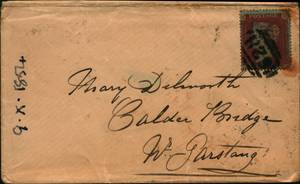 POSTAGE
9. X. 1854
Mary Dilworth
Calder Bridge
Nr. Garstang